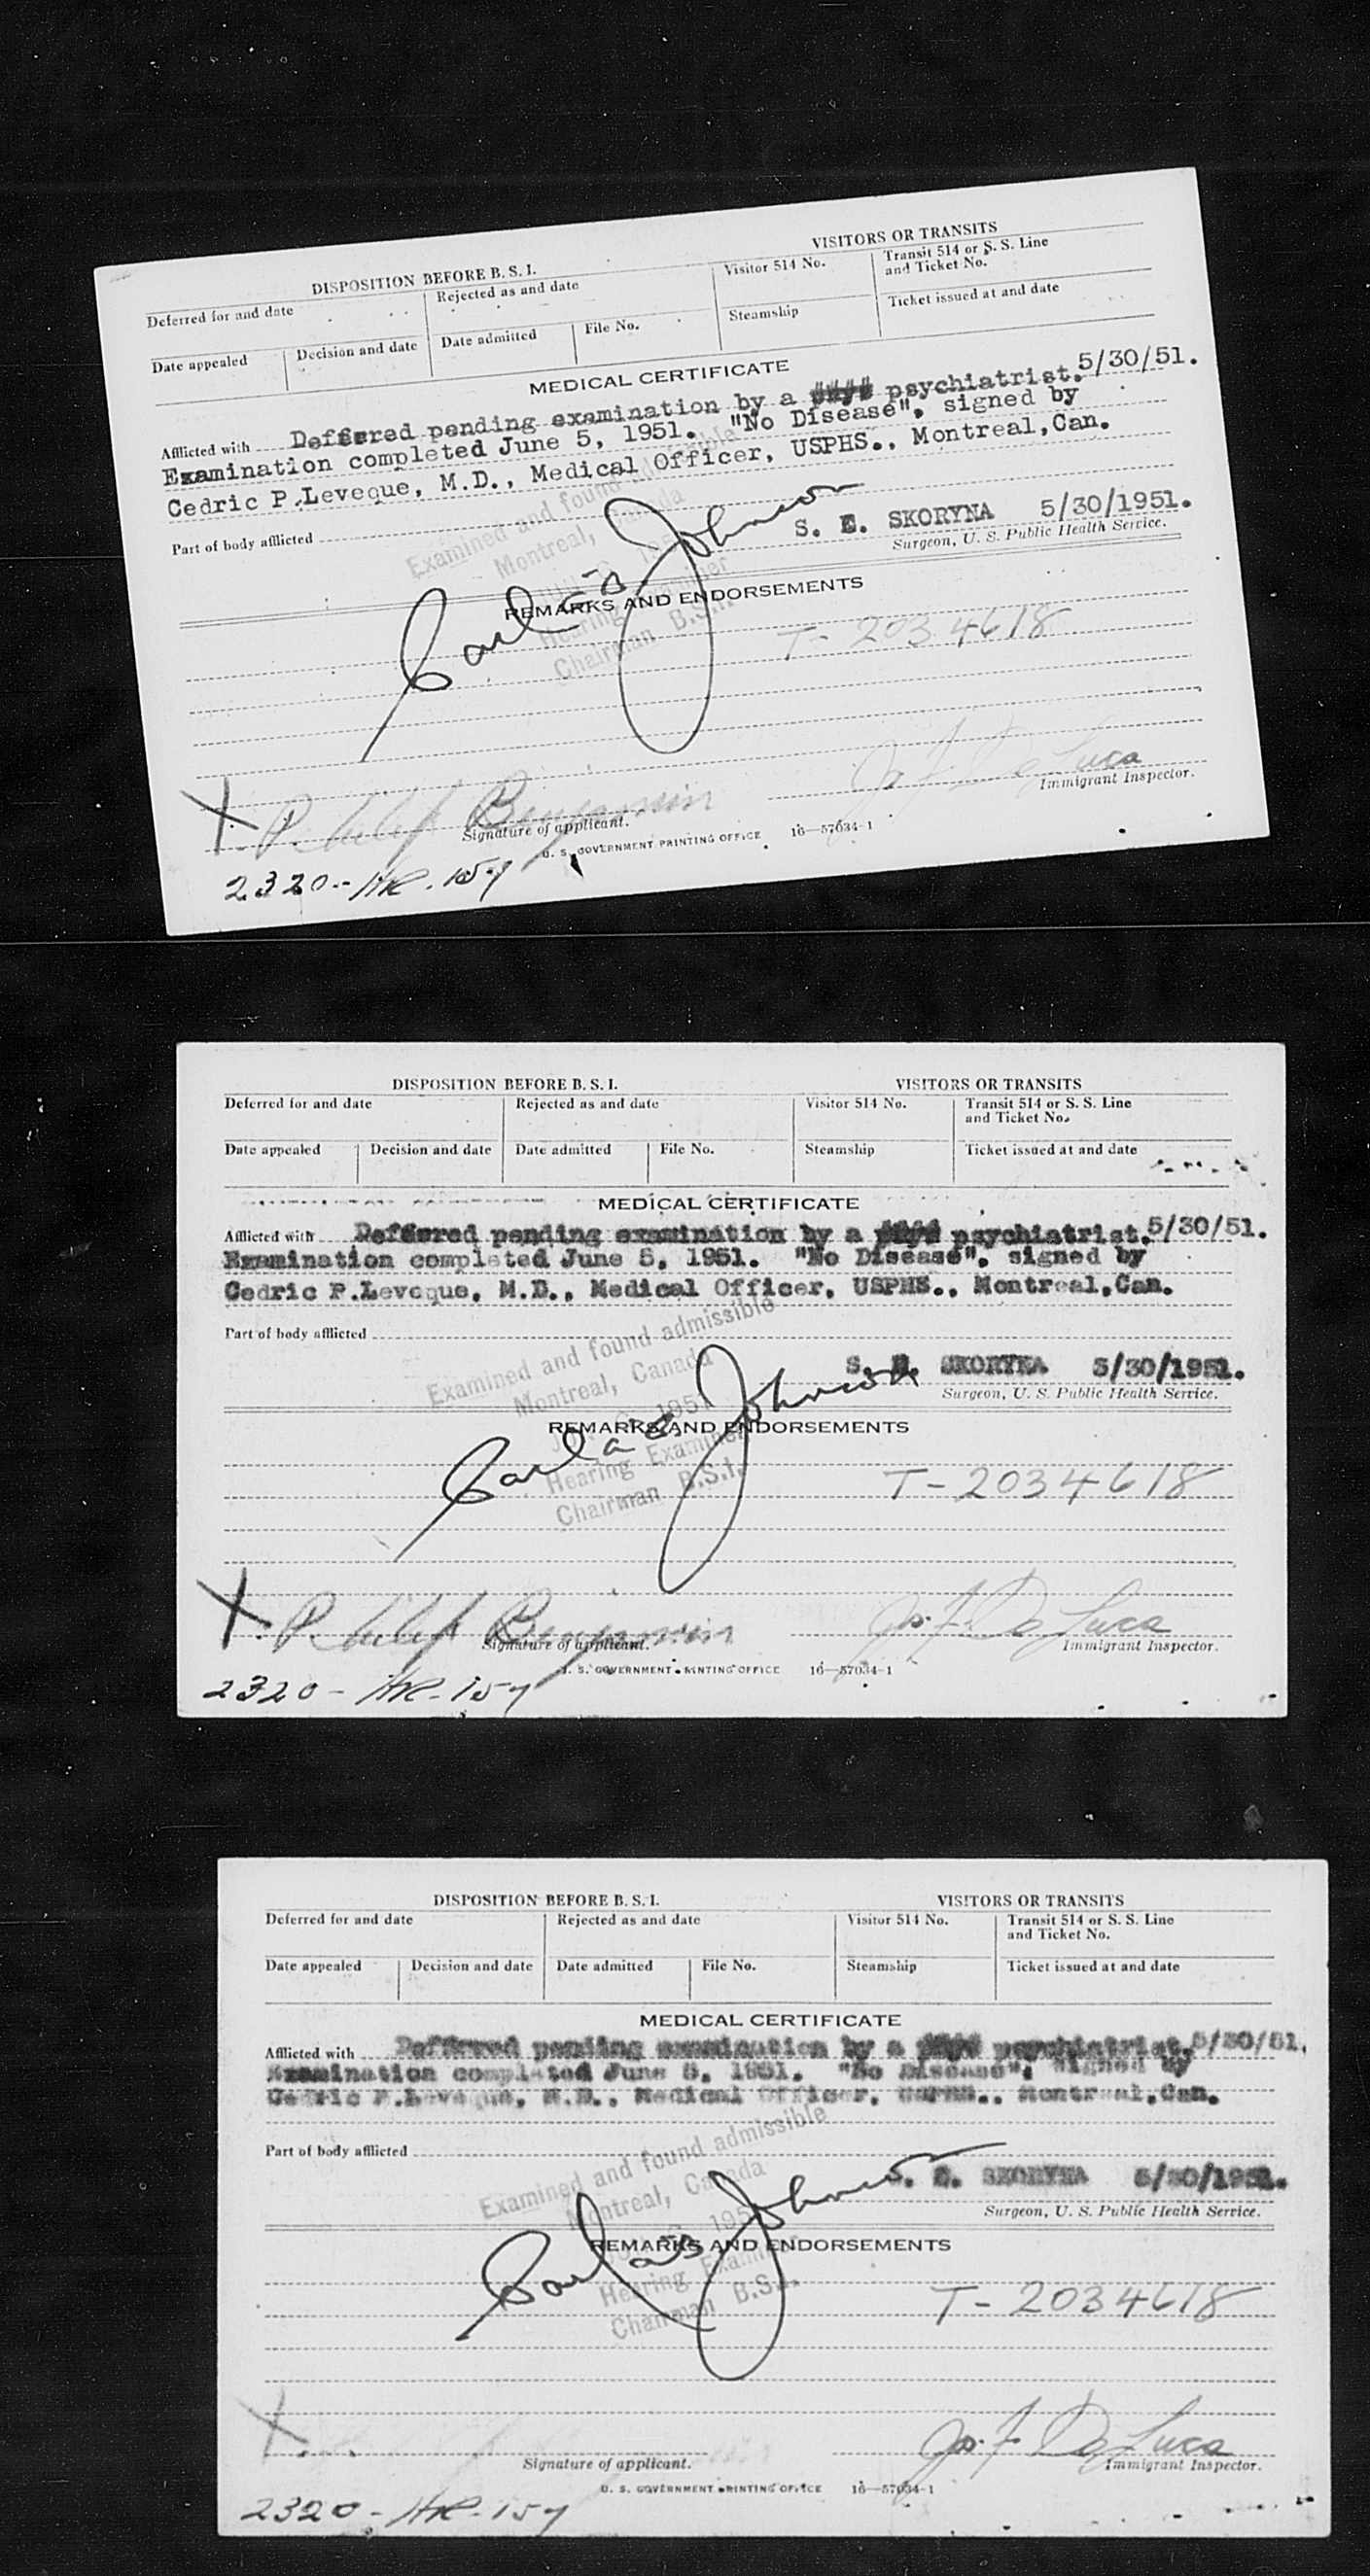 DISPOSITION BEFORE B. S. I.
VISITORS OR TRANSITS
Deferred for and date
Rejected as and date
Visitor 514 No.
Transit 514 or S. S. Line
and Ticket No.
Date appealed
Decision and date
Date admitted
File No.
Steamship
Ticket issued at and date
MEDICAL CERTIFICATE
Afflicted with Deffered pending examination by a psychiatrist. 5/30/51.
Examination completed June 5, 1951. "No Disease", signed by
Cedric P.Leveque, M.D., Medical Officer, USPHS., Montreal,Can.
Part of body afflicted
S. E. SKORYNA 5/30/1951.
Surgeon, U. S. Public Health Service.
Examined and found
Montreal, Canada
Hearing
Chairman B.S.I.
Carl B Johnson
REMARKS AND ENDORSEMENTS
T- 2034618
X Philip Benjamin
Jos F De Luca
Signature of applicant.
Immigrant Inspector.
U. S. GOVERNMENT PRINTING OFFICE 16—57034-1
2320-HR-157
DISPOSITION BEFORE B. S. I.
VISITORS OR TRANSITS
Deferred for and date
Rejected as and date
Visitor 514 No.
Transit 514 or S. S. Line
and Ticket No.
Date appealed
Decision and date
Date admitted
File No.
Steamship
Ticket issued at and date
MEDICAL CERTIFICATE
Afflicted with Deffered pending examination by a psychiatrist. 5/30/51.
Examination completed June 5, 1951. "No Disease", signed by
Cedric P.Leveque, M.D., Medical Officer, USPHS., Montreal,Can.
Part of body afflicted
Examined and found admissible
Montreal, Canada
1951
Hearing Examiner
Chairman B.S.I.
S. E. SKORYNA 5/30/1951.
Surgeon, U. S. Public Health Service.
Carl B Johnson
REMARKS AND ENDORSEMENTS
T-2034618
X Philip Benjamin
Jos. F. De Luca
Signature of applicant.
Immigrant Inspector.
U. S. GOVERNMENT PRINTING OFFICE 16—57034-1
2320-HR-157
DISPOSITION BEFORE B. S. I.
VISITORS OR TRANSITS
Deferred for and date
Rejected as and date
Visitor 514 No.
Transit 514 or S. S. Line
and Ticket No.
Date appealed
Decision and date
Date admitted
File No.
Steamship
Ticket issued at and date
MEDICAL CERTIFICATE
Afflicted with Deffered pending examination by a psychiatrist. 5/30/51.
Examination completed June 5, 1951. "No Disease", signed by
Cedric P.Leveque, M.D., Medical Officer, USPHS., Montreal,Can.
Part of body afflicted
Examined and found admissible
Montreal, Canada
Hearing Examiner
Chairman B.S.I.
S. E. SKORYNA 5/30/1951.
Surgeon, U. S. Public Health Service.
Carl B Johnson
REMARKS AND ENDORSEMENTS
T- 2034618
X
Jos. F De Luca
Signature of applicant.
Immigrant Inspector.
U. S. GOVERNMENT PRINTING OFFICE 16—57034-1
2320-HR-157